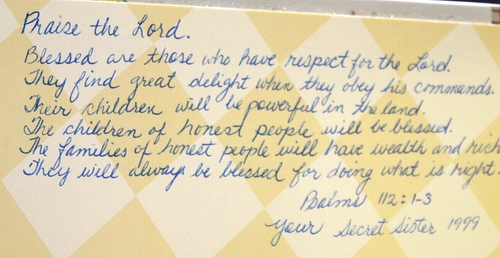 Praise the Lord.
Blessed are those who have respect for the Lord.
They find great delight when they obey his commands.
Their children will be powerful in the land.
The children of honest people will be blessed.
The families of honest people will have wealth and rich
They will always be blessed for doing what is right.
Psalms 112:1-3
Your Secret Sister 1999